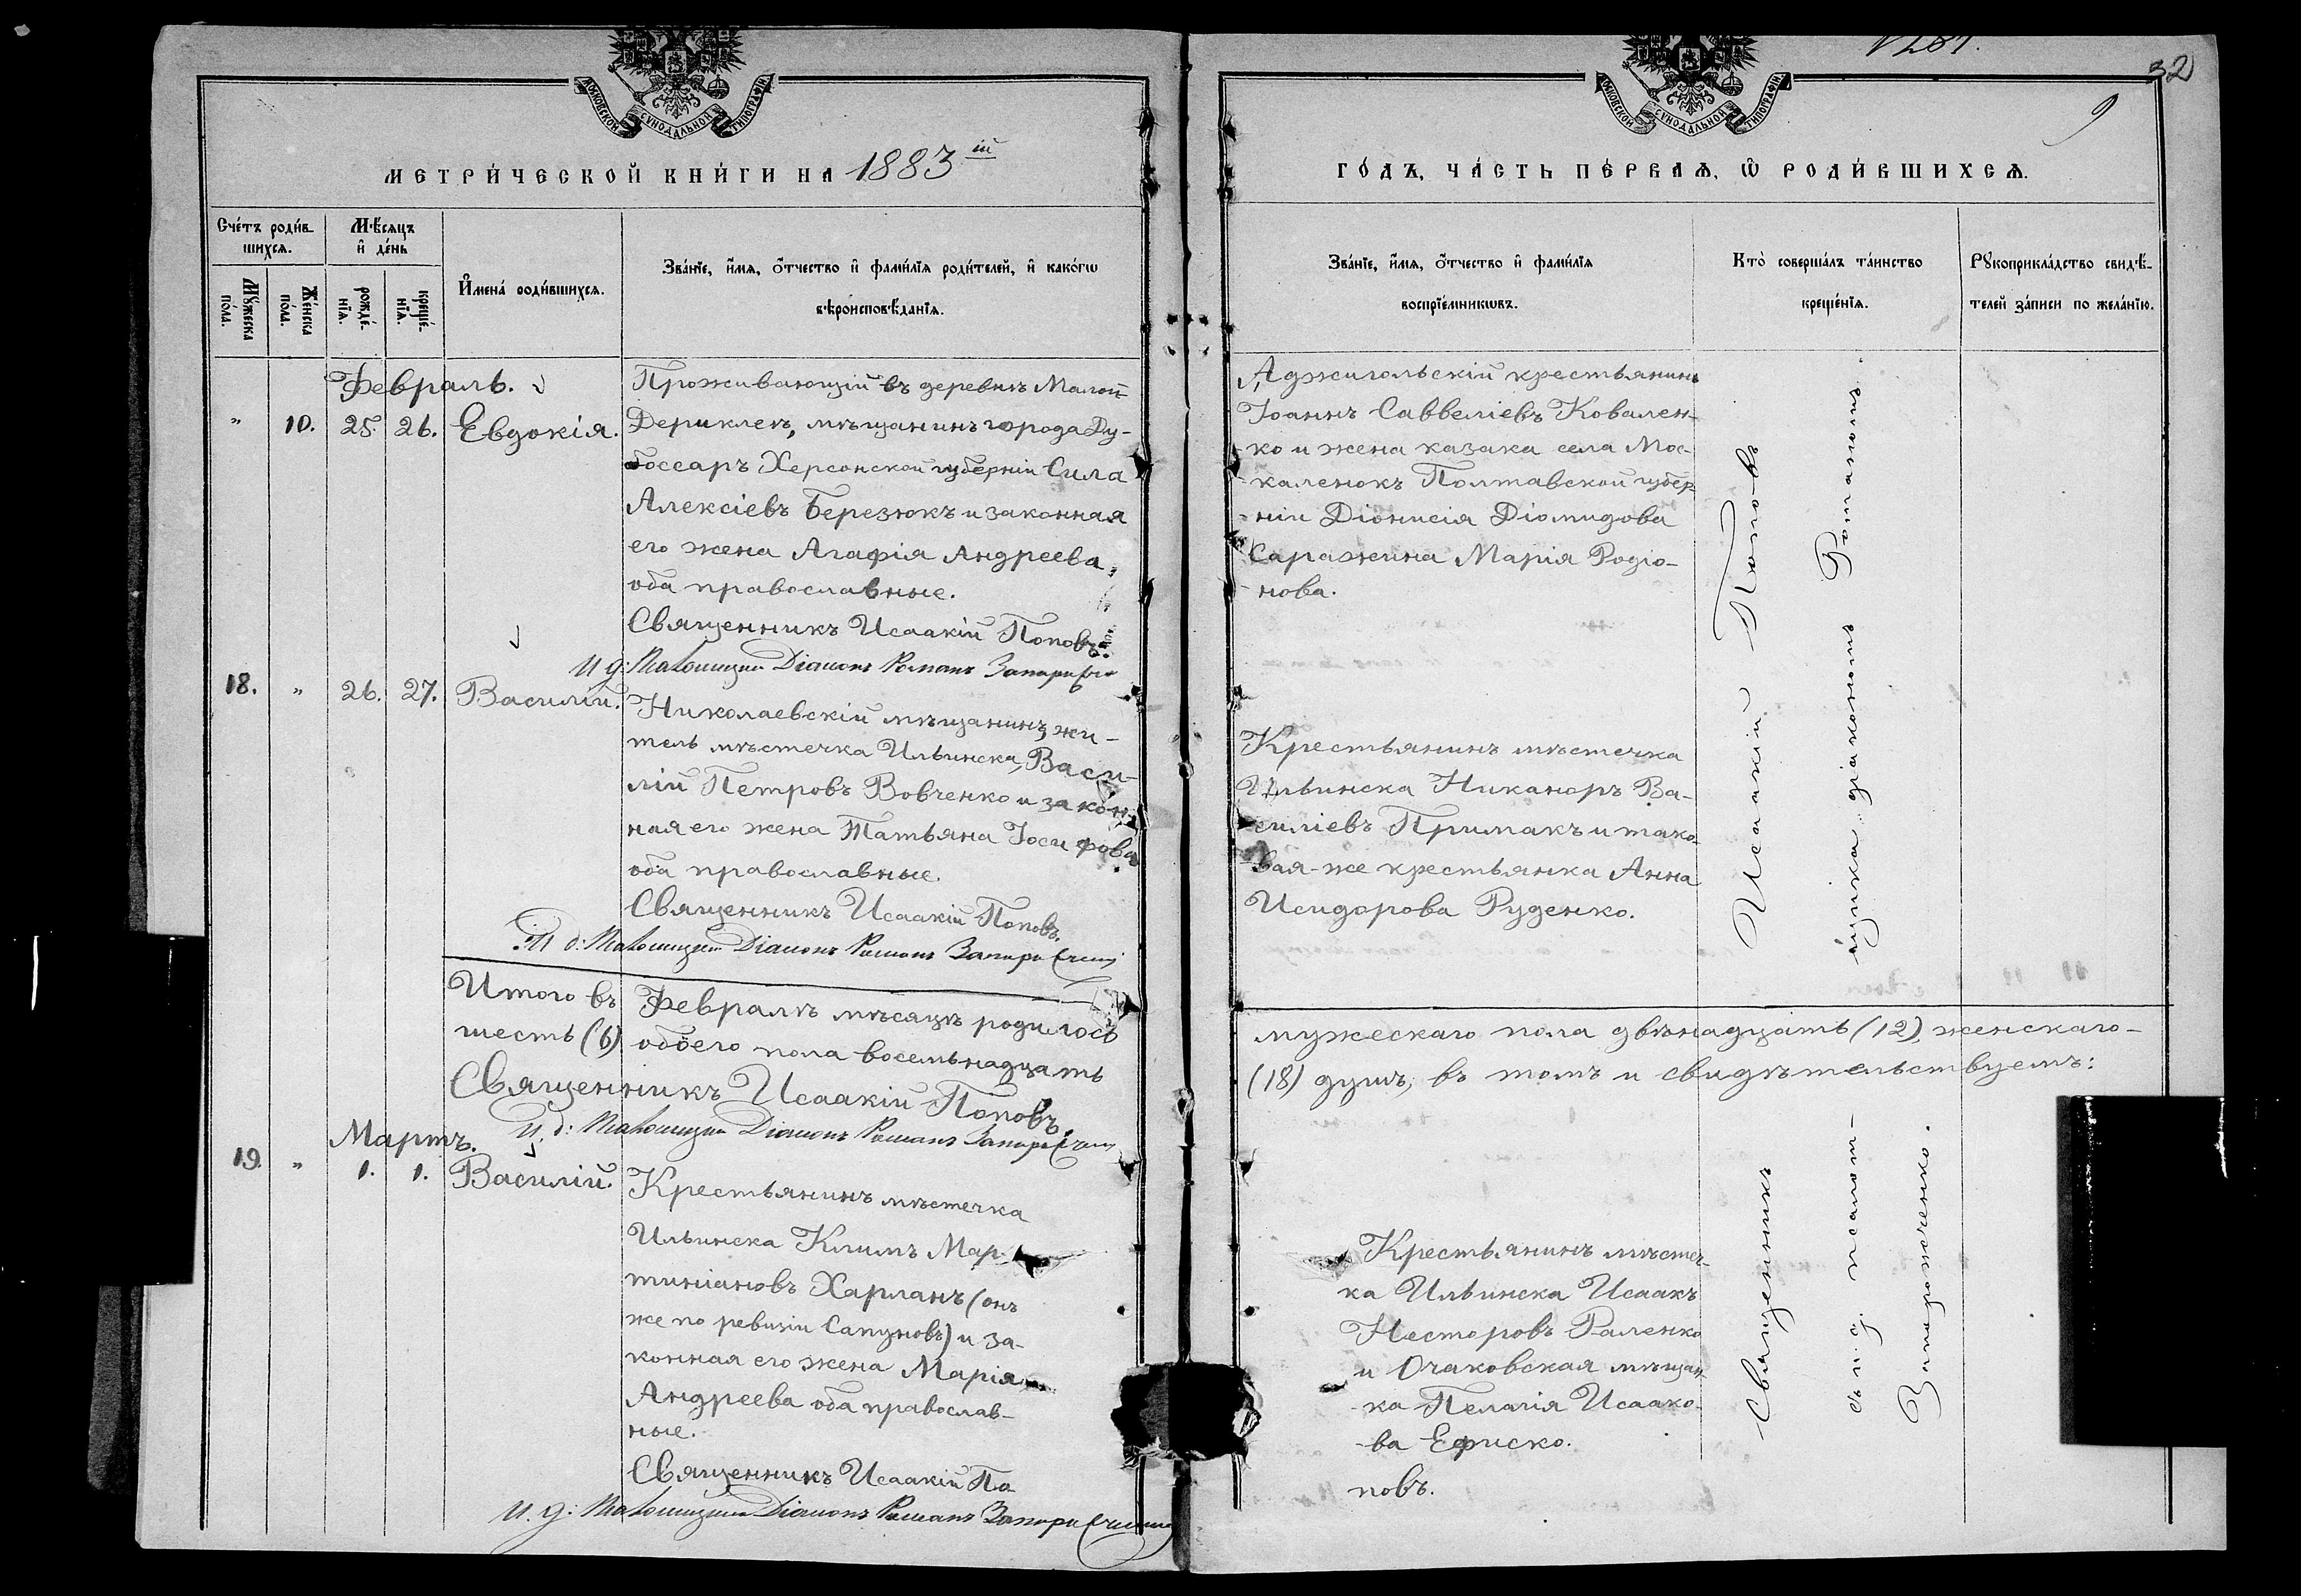 МОСКОВСКОЙ СѴНОДАЛЬНОЙ ТИПОГРАФІИ
МЕТРИ́ЧЕСКОЙ КНИ́ГИ НА 1883 ій
Сче́тъ роди́в-
шихсѧ.
Мѣ́сѧцъ
и҆ де́нь
Мꙋ́жеска
по́ла.
Же́нска
по́ла.
рожде́-
нїѧ.
креще́-
нїѧ.
И҆мена̀ роди́вшихсѧ.
Зва́нїе, и҆́мѧ, ѻ҆́тчество и҆ фами́лїѧ роди́телей, и҆ како́гѡ
вѣроисповѣ́данїѧ.
Февраль.
" 10. 25. 26. Евдокія.
Проживающій въ деревнѣ Малой
Дериклеѣ, мѣщанинъ города Ду-
боссаръ Херсонской губерніи Сила
Алексіевъ Березюкъ и законная
его жена Агафія Андреева,
оба православные.
Священникъ Исаакій Поповъ.
И д: Псаломщика Діаконъ Романъ
18. " 26. 27. Василій.
Николаевскій мѣщанинъ, жи-
тель мѣстечка Ильинска, Васи-
лій Петровъ Вовченко и закон-
ная его жена Татьяна Іосифова
оба православные.
Священникъ Исаакій Поповъ.
И д: Псаломщика Діаконъ Романъ
Итого въ Февралѣ мѣсяцѣ родилось
шесть (6) обоего пола восемьнадцать
Священникъ Исаакій Поповъ.
И. д: Псаломщика Діаконъ Романъ
Мартъ.
19. " 1. 1. Василій.
Крестьянинъ мѣстечка
Ильинска Климъ Мар-
тиніановъ Харланъ (онъ
же по ревизіи Сапуновъ) и за-
конная его жена Марія
Андреева оба православ-
ные.
Священникъ Исаакій По
И. д: Псаломщика Діаконъ Романъ
32
9
МОСКОВСКОЙ СѴНОДАЛЬНОЙ ТИПОГРАФІИ
ГО́ДЪ, ЧА́СТЬ ПЕ́РВАѦ, Ѡ҆ РОДИ́ВШИХСѦ.
Зва́нїе, и҆́мѧ, ѻ҆́тчество и҆ фами́лїѧ
воспрїе́мникѡвъ.
Кто̀ соверша́лъ та́инство
креще́нїѧ.
Рꙋкоприкла́дство свидѣ́-
телей за́писи по жела́нїю.
Аджигольскій крестьянинъ
Іоаннъ Саввеліевъ Ковален-
ко и жена казака села Мос-
каленокъ Полтавской губер-
ніи Діонисія Діомидова
Саражина Марія Родіо-
нова.
Крестьянинъ мѣстечка
Ильинска Никаноръ Ва-
силіевъ Примакъ и тако-
вая-же крестьянка Анна
Исидорова Руденко.
мужескаго пола двѣнадцать (12), женскаго-
(18) душъ; въ томъ и свидѣтельствуемъ:
Крестьянинъ мѣстеч-
ка Ильинска Исаакъ
Несторовъ Раленко
и Очаковская мѣщан-
ка Пелагія Исаако-
ва Ефиско.
повъ.
Священникъ Исаакій Поповъ
съ и. д. псалом-щика діакономъ Романомъ
Запорожченко.